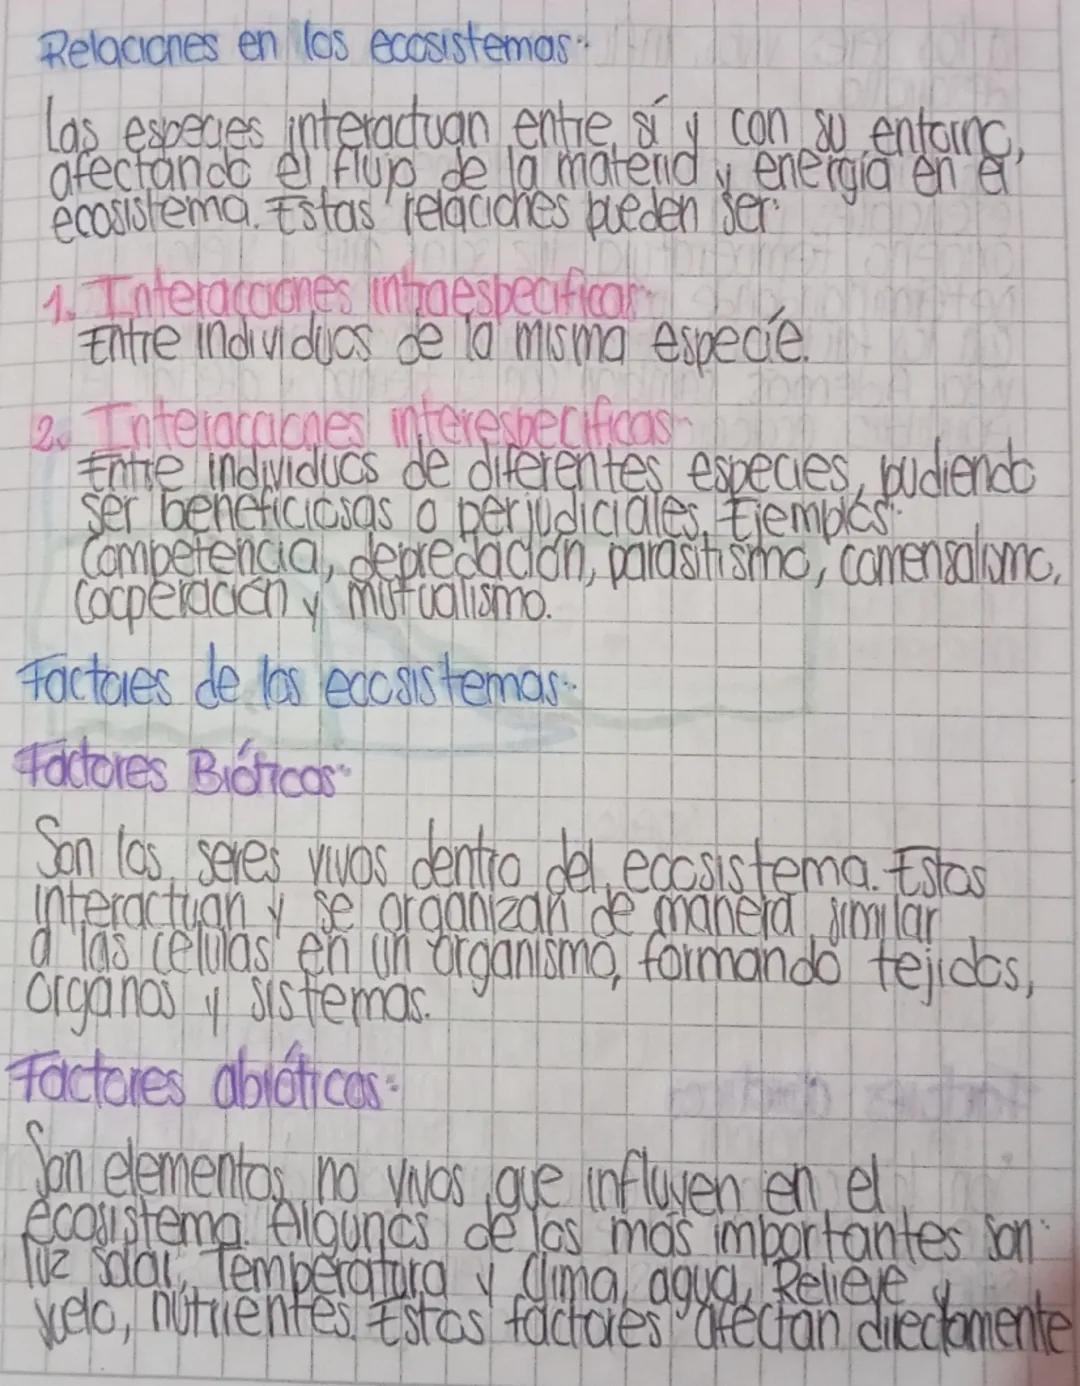 Relaciones en los ecosistemas:
Las especies interactuan entre sí y con su entorno,
afectando el flujo de la materia y energía en el
ecosistema. Estas relaciones pueden ser:
1. Interacciones intraespecificas:
Entre individuos de la misma especíe.
2. Interacciones interespecificas:
Entre individuos de diferentes especies, pudiendo
ser beneficiosas o perjudiciales. Ejemplos:
Competencia, depredación, parasitismo, comensalismo,
Cooperación y mutualismo.
Factores de los ecosistemas:
Factores Bióticos:
Son los seres vivos dentro del ecosistema. Estos
interactuan y se organizan de manera similar
a las células en un organismo, formando tejidos,
organos y sistemas.
Factores abióticos:
Son elementos no vivos que influyen en el
ecosistema. Algunos de los más importantes son:
luz solar, Temperatura y clima, agua, Relieve y
suelo, nutrientes. Estos factores afectan directamente